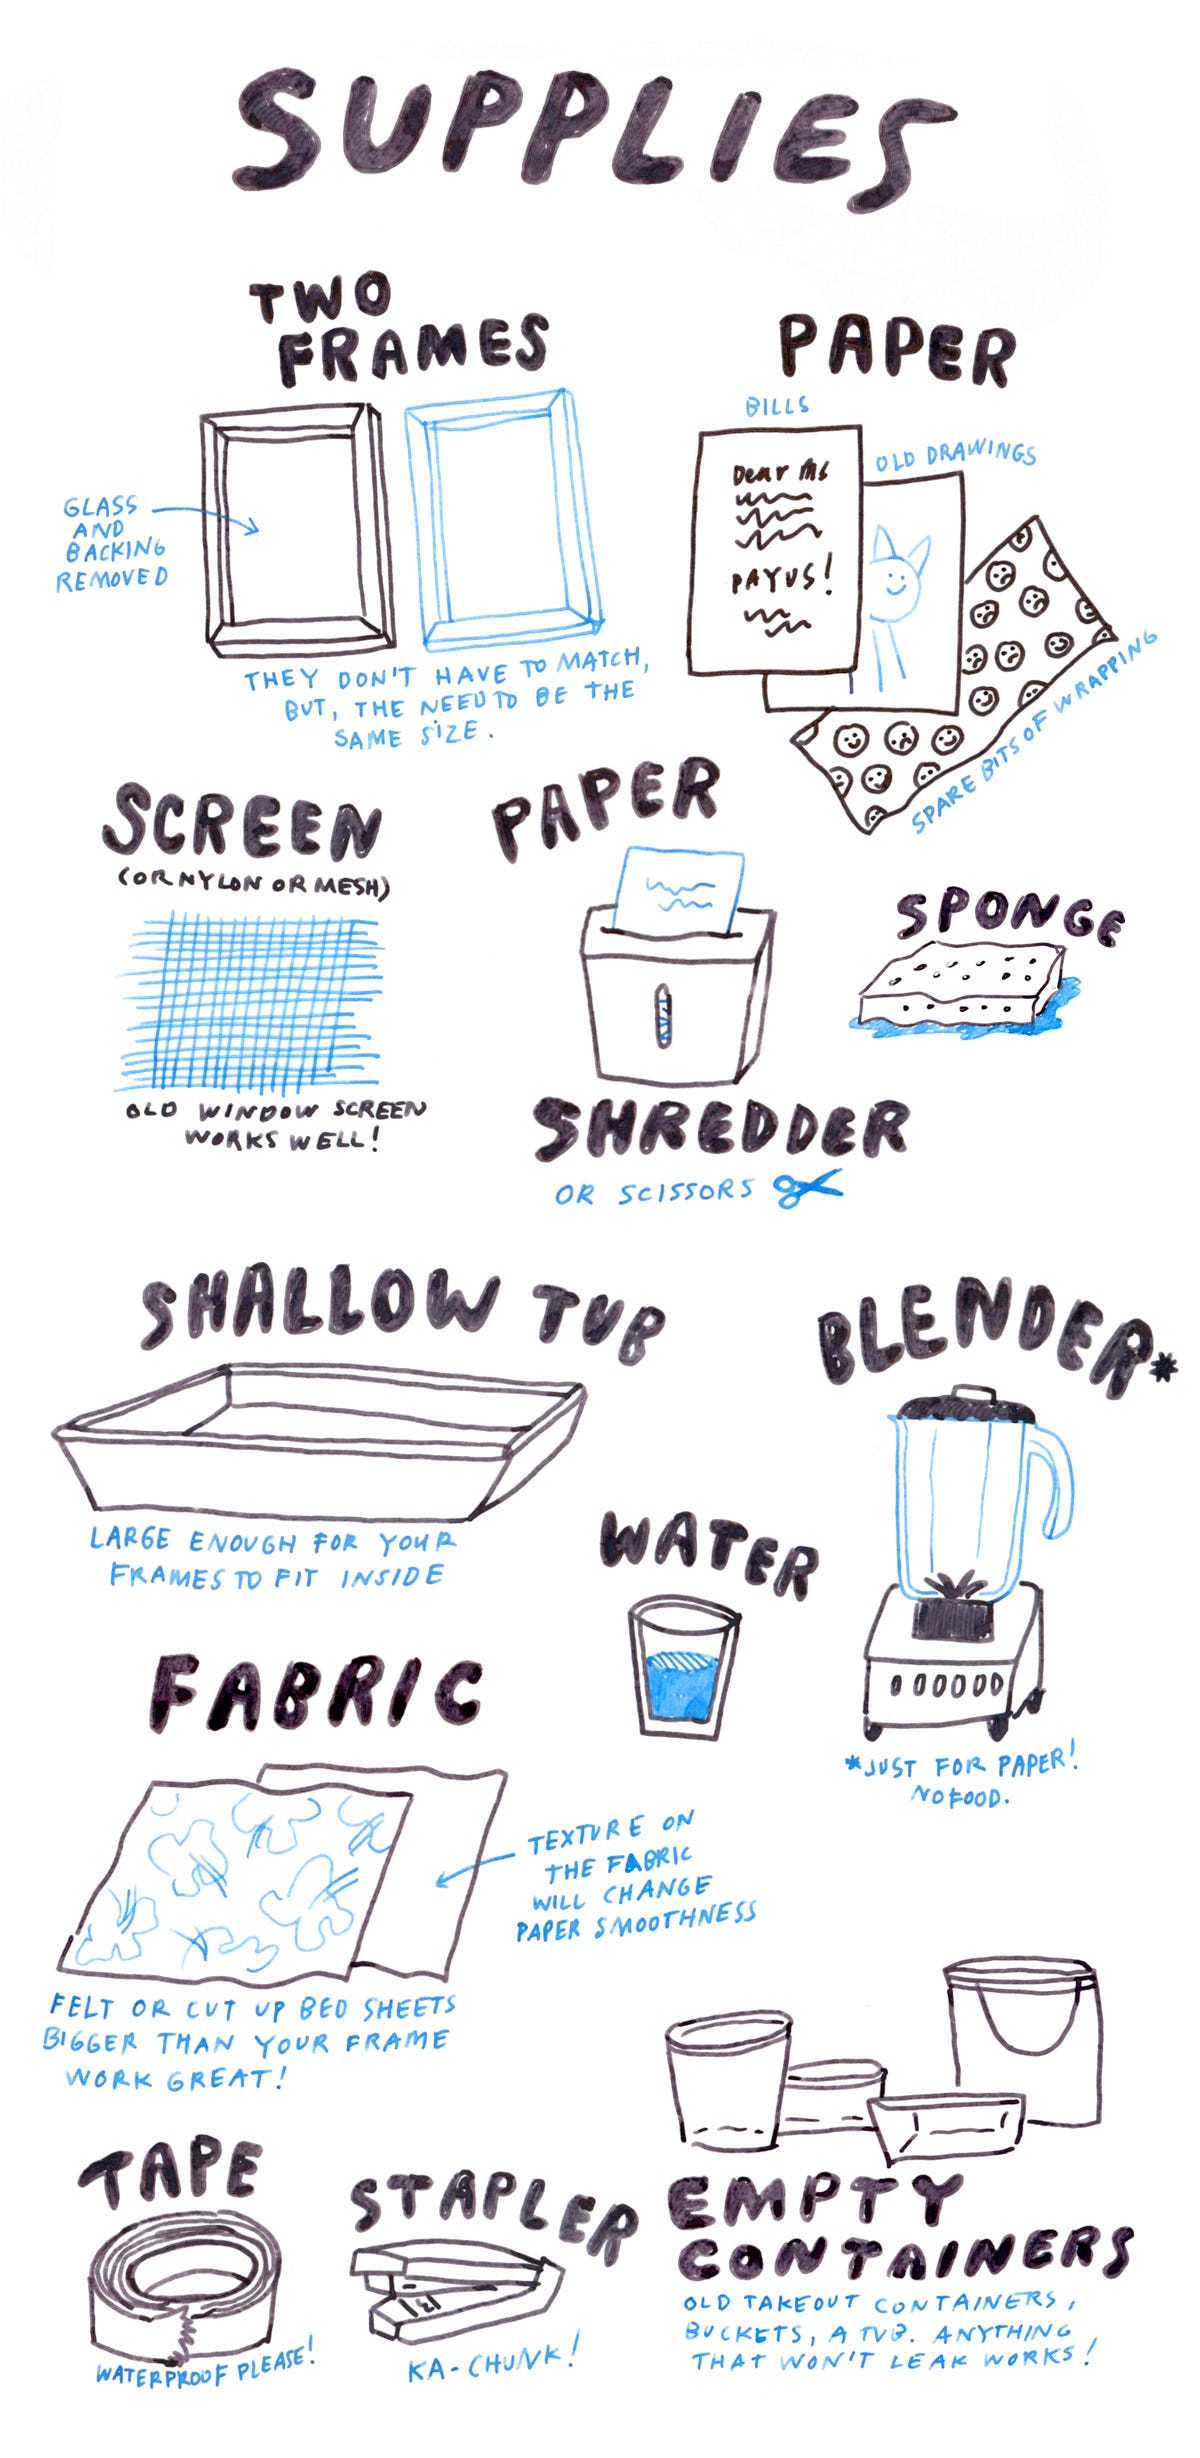 SUPPLIES
TWO
FRAMES
GLASS
AND
BACKING
REMOVED
THEY DON'T HAVE TO MATCH,
BUT, THE NEED TO BE THE
SAME SIZE.
PAPER
BILLS
Dear Ms
PAY US!
OLD DRAWINGS
SPARE BITS OF WRAPPING
SCREEN
(OR NYLON OR MESH)
OLD WINDOW SCREEN
WORKS WELL!
PAPER
SHREDDER
OR SCISSORS
SPONGE
SHALLOW TUB
LARGE ENOUGH FOR YOUR
FRAMES TO FIT INSIDE
BLENDER*
*JUST FOR PAPER!
NO FOOD.
WATER
FABRIC
TEXTURE ON
THE FABRIC
WILL CHANGE
PAPER SMOOTHNESS
FELT OR CUT UP BED SHEETS
BIGGER THAN YOUR FRAME
WORK GREAT!
TAPE
WATERPROOF PLEASE!
STAPLER
KA-CHUNK!
EMPTY
CONTAINERS
OLD TAKEOUT CONTAINERS,
BUCKETS, A TUB. ANYTHING
THAT WON'T LEAK WORKS!